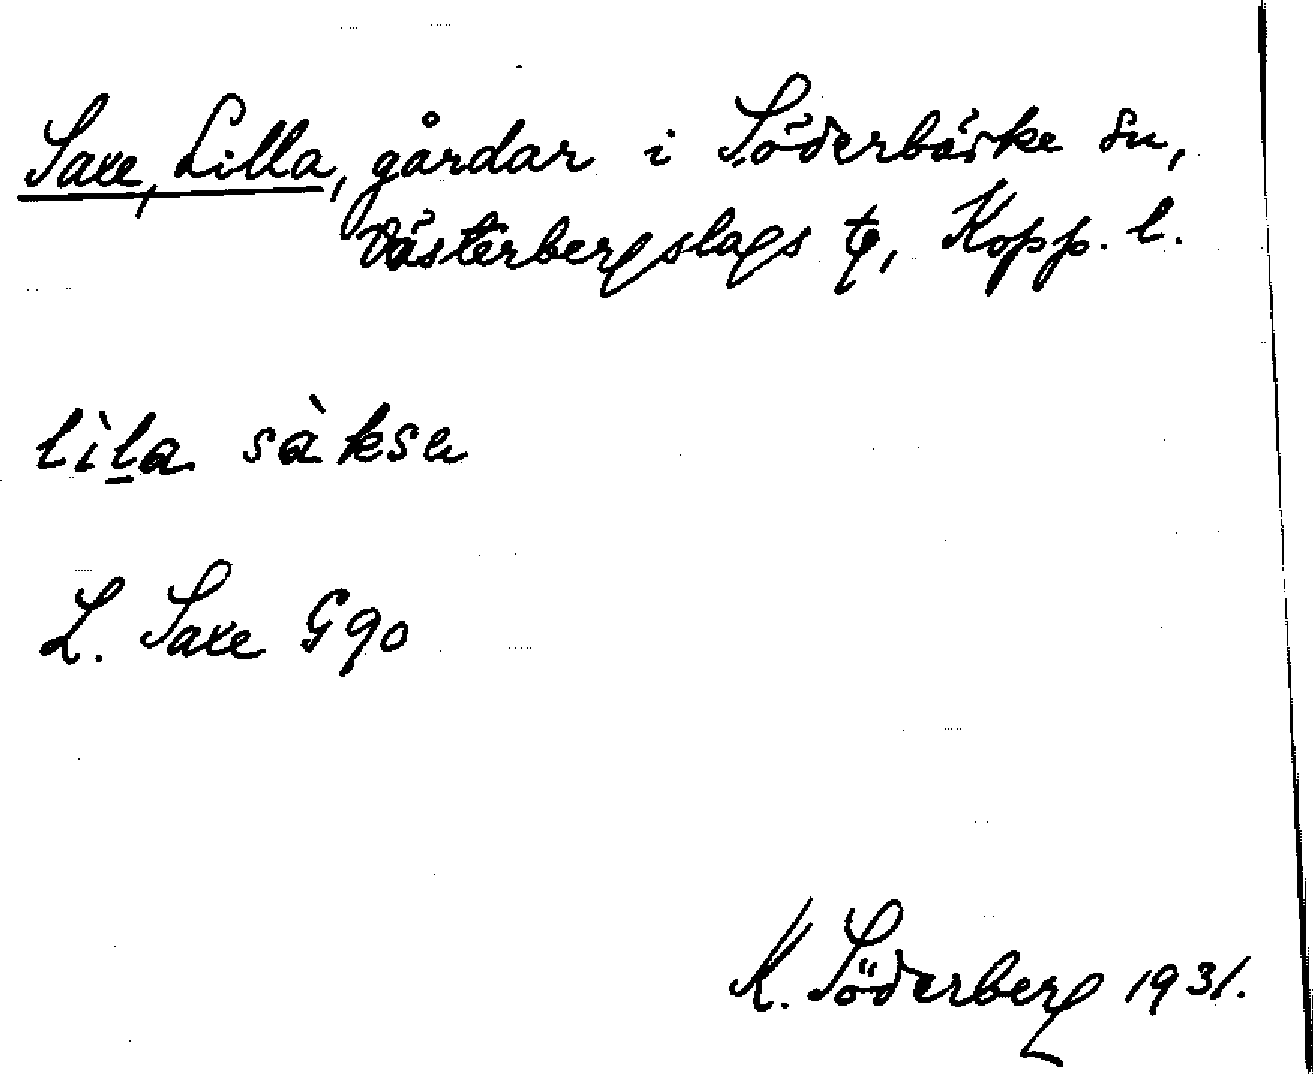 Saxe, Lilla, gårdar i Söderbärke sn,
Västerbergslags tg, Kopp. l.
lìla sàksa
L. Saxe G90
K. Söderberg 1931.